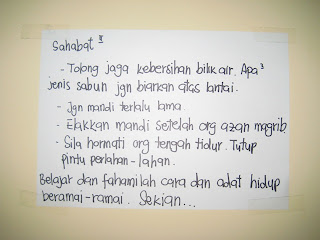 Sahabat²
- Tolong jaga kebersihan bilik air. Apa³
jenis sabun jgn biarkan atas lantai.
- Jgn mandi terlalu lama.
- Elakkan mandi setelah org azan magrib
- Sila hormati org tengah tidur. Tutup
pintu perlahan-lahan.
Belajar dan fahamilah cara dan adat hidup
beramai-ramai. Sekian...